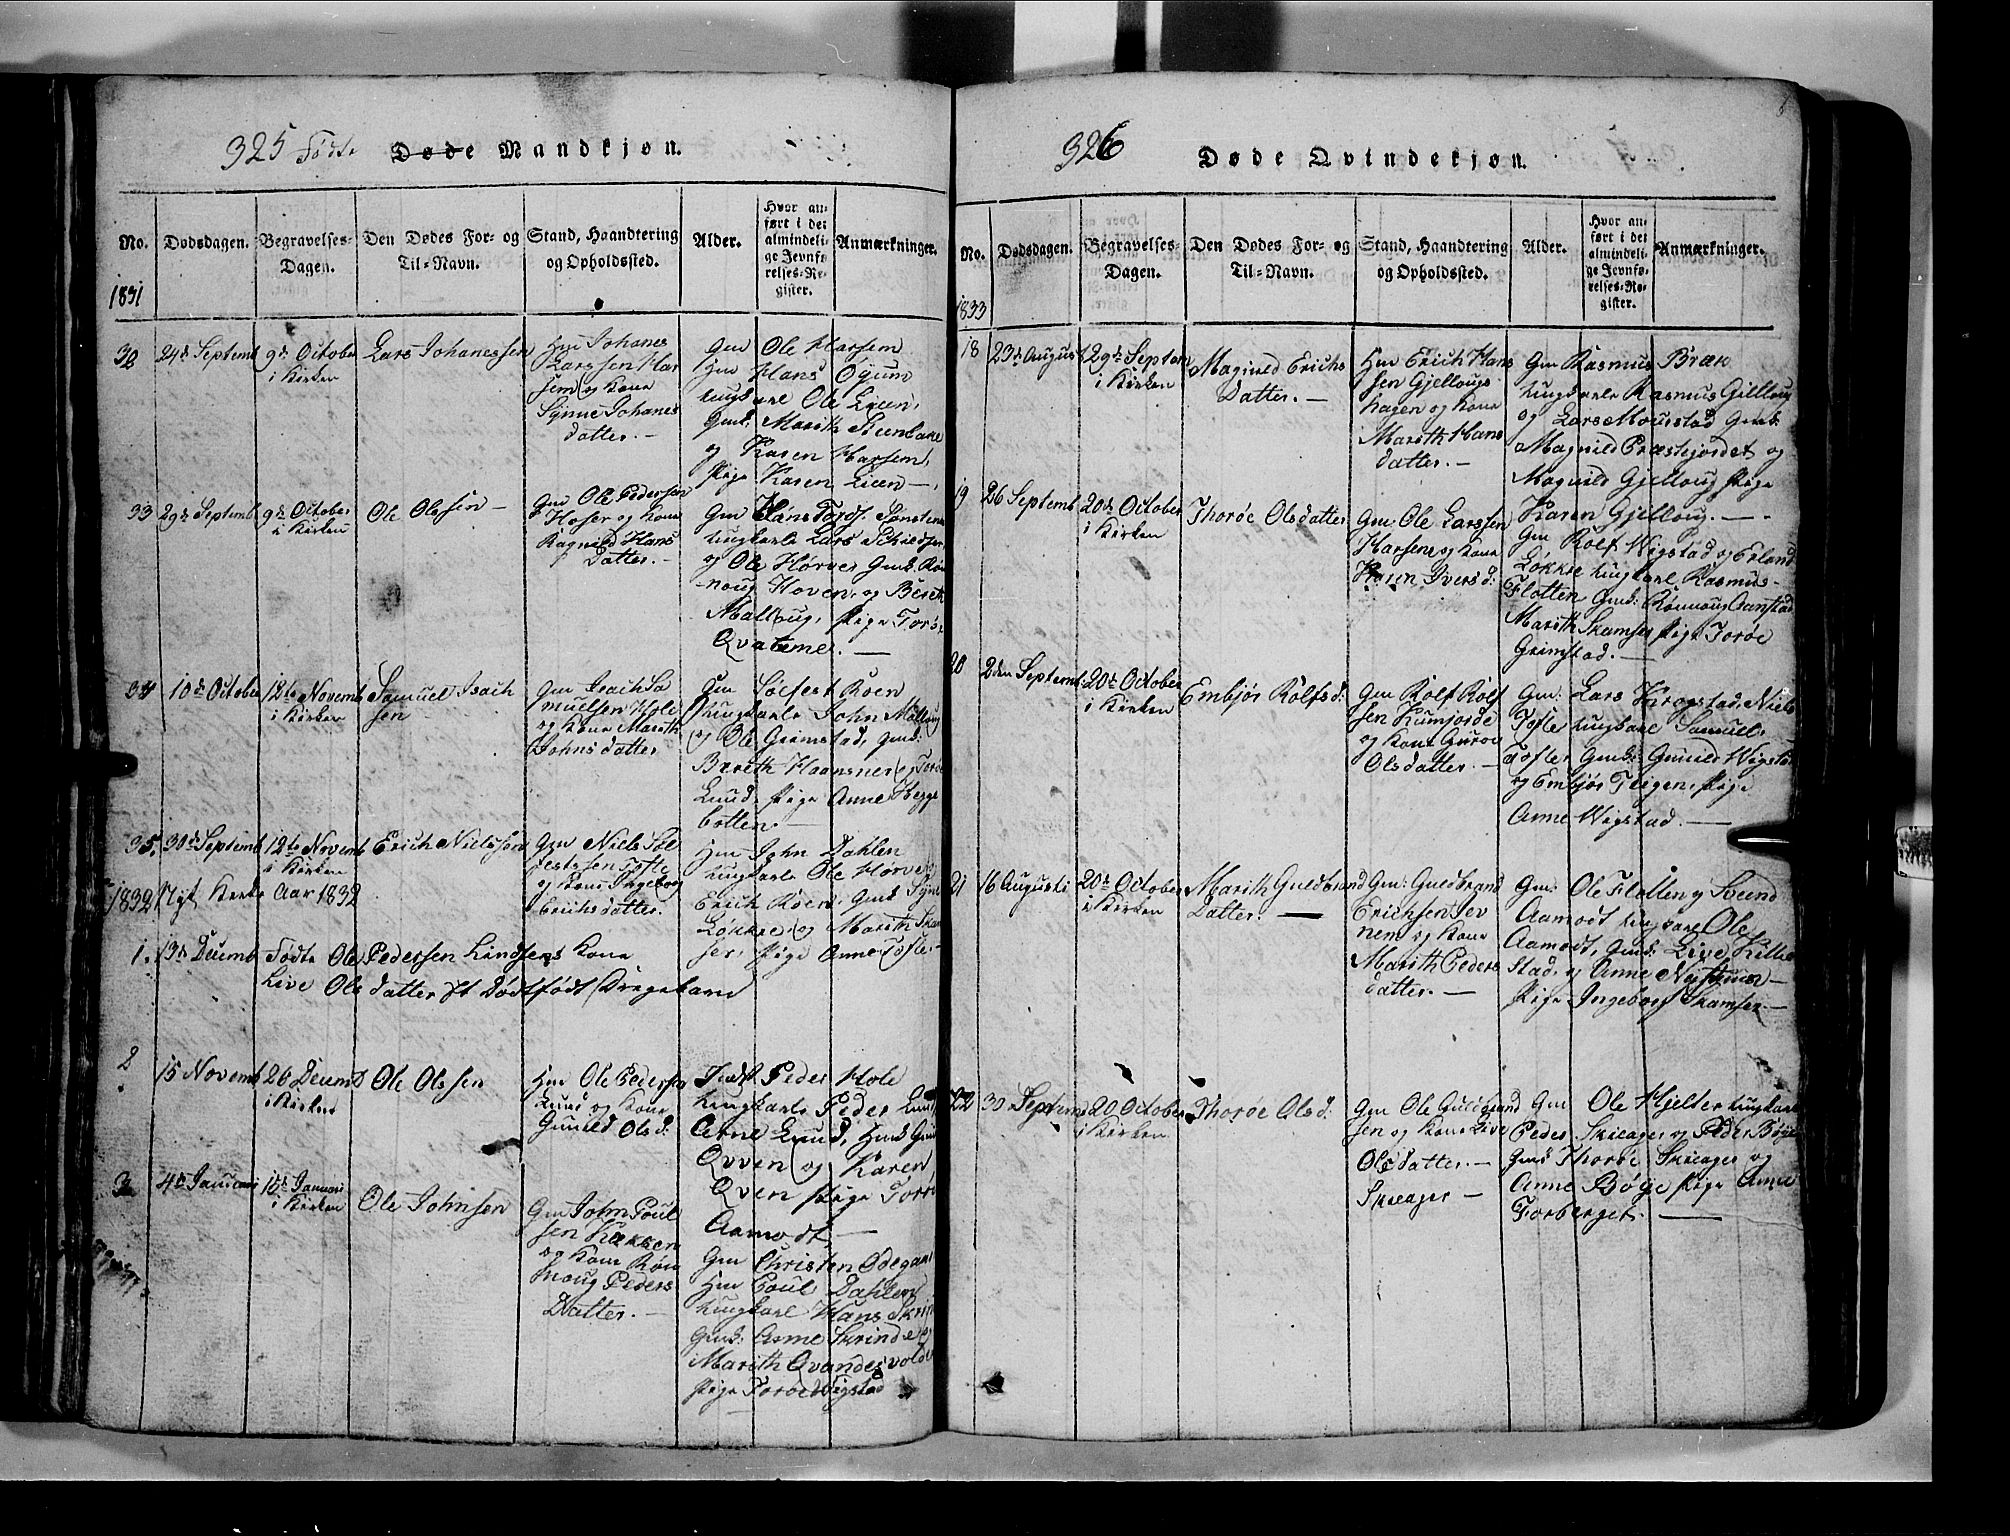 325 Fødte Døde Mandkjøn.
No.
Dødsdagen.
Begravelses-
Dagen.
Den Dødes For- og
Til-Navn.
Stand, Haandtering
og Opholdssted.
Alder.
Hvor an-
ført i det
almindeli-
ge Jevnfø-
relses-Re-
gister.
Anmærkninger.
1831
32
24de Septemb
9de October
i Kirken
Lars Johanessen
Hm Johanes
Larssen Har
sem og Kone
Synne Johanes
datter. —
Gm Ole Harsem
Hm Hans Øyum
ungkarl Ole Lien,
Gmd: Marith Steenbake
og Karen Harsem,
Pige Karen Lien —
33
29de Septemb
9de October
i Kirken
Ole Olssen —
Gm Ole Pedersen
og Kone
Ragnild Hans
Datter. —
Gm Hans
ungkarle Lars
og Ole Hørven Gmd. Røn
noug Hoven, og Bereth
Malloug, Pige Toro
34
10de October
12te Novemb
i Kirken
Samuel Isach
sen —
Gm Isach Sa
muelsen Hole
og Kone Marith
Johnsdatter
Gm Solfest Røen
ungkarle John
og Ole Grimstad, Gmd:
Bereth Haansnes og Toroe
Lund, Pige Anne Hegge
botten —
35.
30de Septemb
12te Novemb
i Kirken
Erich Nielssen
Gm Niels Sol
festssen Tofte
og Kone Ingebog
Erichsdatter.
Hm John Dahlen
ungkarle Ole Hørven
Erich Røen, Gmd Syne
Løkke og Marith Skam
ser, Pige Anne Tofte —
1832 Nyt Kirke Aar 1832
1.
13de Decemb
Fødte Ole Pedersen Kone
Live Olsdatter et Dødtfødt Drengebarn
2
15 Novemb
26 Decemb
i Kirken
Ole Olssen
Hm Ole Pedersen
Lund og Kone
Gunild Olsd:
Peder Hole
ungkarle Peder Lund
Arne Lund,
Qvven og Karen
Qven Pige Toroe
Aamodt —
3
4de Januari
15de Januari
i Kirken
Ole Johnsen
Gm John Poul
sen
og Kone Røn
noug Peders
Datter. —
Gm Christen Ødegaar
Hm Poul Dahlen
ungkarl Hans
Gmd: Anne Skrinde og
Marith Qvandesvolde
Pige Toroe Wigstad
326
Døde Qvindekjøn.
No.
Dødsdagen.
Begravelses-
Dagen.
Den Dødes For- og
Til-Navn.
Stand, Haandtering
og Opholdssted.
Alder.
Hvor an-
ført i det
almindeli-
ge Jevnfø-
relses-Re-
gister.
Anmærkninger.
1833
18
23de August
29de Septem
i Kirken
Magnild Erichs
Datter. —
Hm Erich Hans
sen Gjellougs
hagen og Kone
Marith Hans
datter. —
Gm Rasmus Bræk
ungkarle Rasmus Gjelloug
og Lars Mourstad Gmd:
Magnild Præstejordet og
Magnild Gjelloug Pige
Karen Gjelloug. —
19
26 Septemb
20de October
i Kirken
Thoroe Olsdatter
Gm: Ole Larssen
Harsem og Kone
Karen Iversd:
Gm Rolf Wigstad og Erland
Løkke ungkarl Rasmus
Flatten Gmd: Rønnoug Aanstad
Marith Skamser Pige Toroe
Grimstad. —
20
2den Septemb
20de October
i Kirken
Embjør Rolfsd:
Gm Rolf Rolf
sen
og Kone Guroe
Olsdatter. —
Gm: Lars Krogstad, Niels
Tofte ungkarl Samuel
Tofte, Gmd: Gunild Wigstad
og Embjør Teigen, Pige
Anne Wigstad. —
21
16 Augusti
20de October
i Kirken
Marith Guldbrand
Datter. —
Gm: Guldbrand
Erichsen Jev
nem og Kone
Marith Peders
datter. —
Gm: Ole Flatten og
Aamodt ungkarl Ole
Aamodt, Gmd: Live Kille
stad, og Anne
Pige Ingeborg Skamser —
22
30 Septemb
20 October
i Kirken
Thoroe Olsd:
Gm Ole Guldbrand
sen og Kone Live
Olsdatter. —
Skieager —
Gm Ole Hjelter ungkarl
Peder Skieager og Peder Bøye
Gmd Thoroe Skieager og
Anne Bøye Pige Anne
Forberget. —